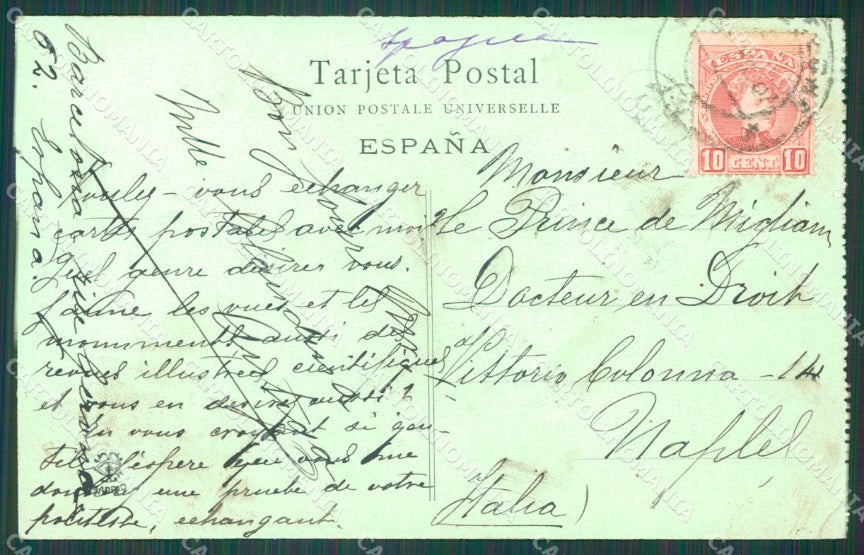 Tarjeta Postal
UNION POSTALE UNIVERSELLE
ESPAÑA
ESPAÑA
10 CENT. 10
Voulez-vous echanger
cartes postales avec moi?
Quel genre désirez vous.
J'aime les vues et les
monuments aussi des
revues illustrées cientifiques
et vous en desirez aussi?
vous croyant si gen-
til j'espere que vous me
une pruebe de votre
politesse, echangeant.
Monsieur
Le Prince de Migliano
Docteur en Droit
Vittorio Colonna - 14
Naples
Italia)
Bon jour
Mille
Barcelona
62. España.
MADRID
CARTOLINOMANIA